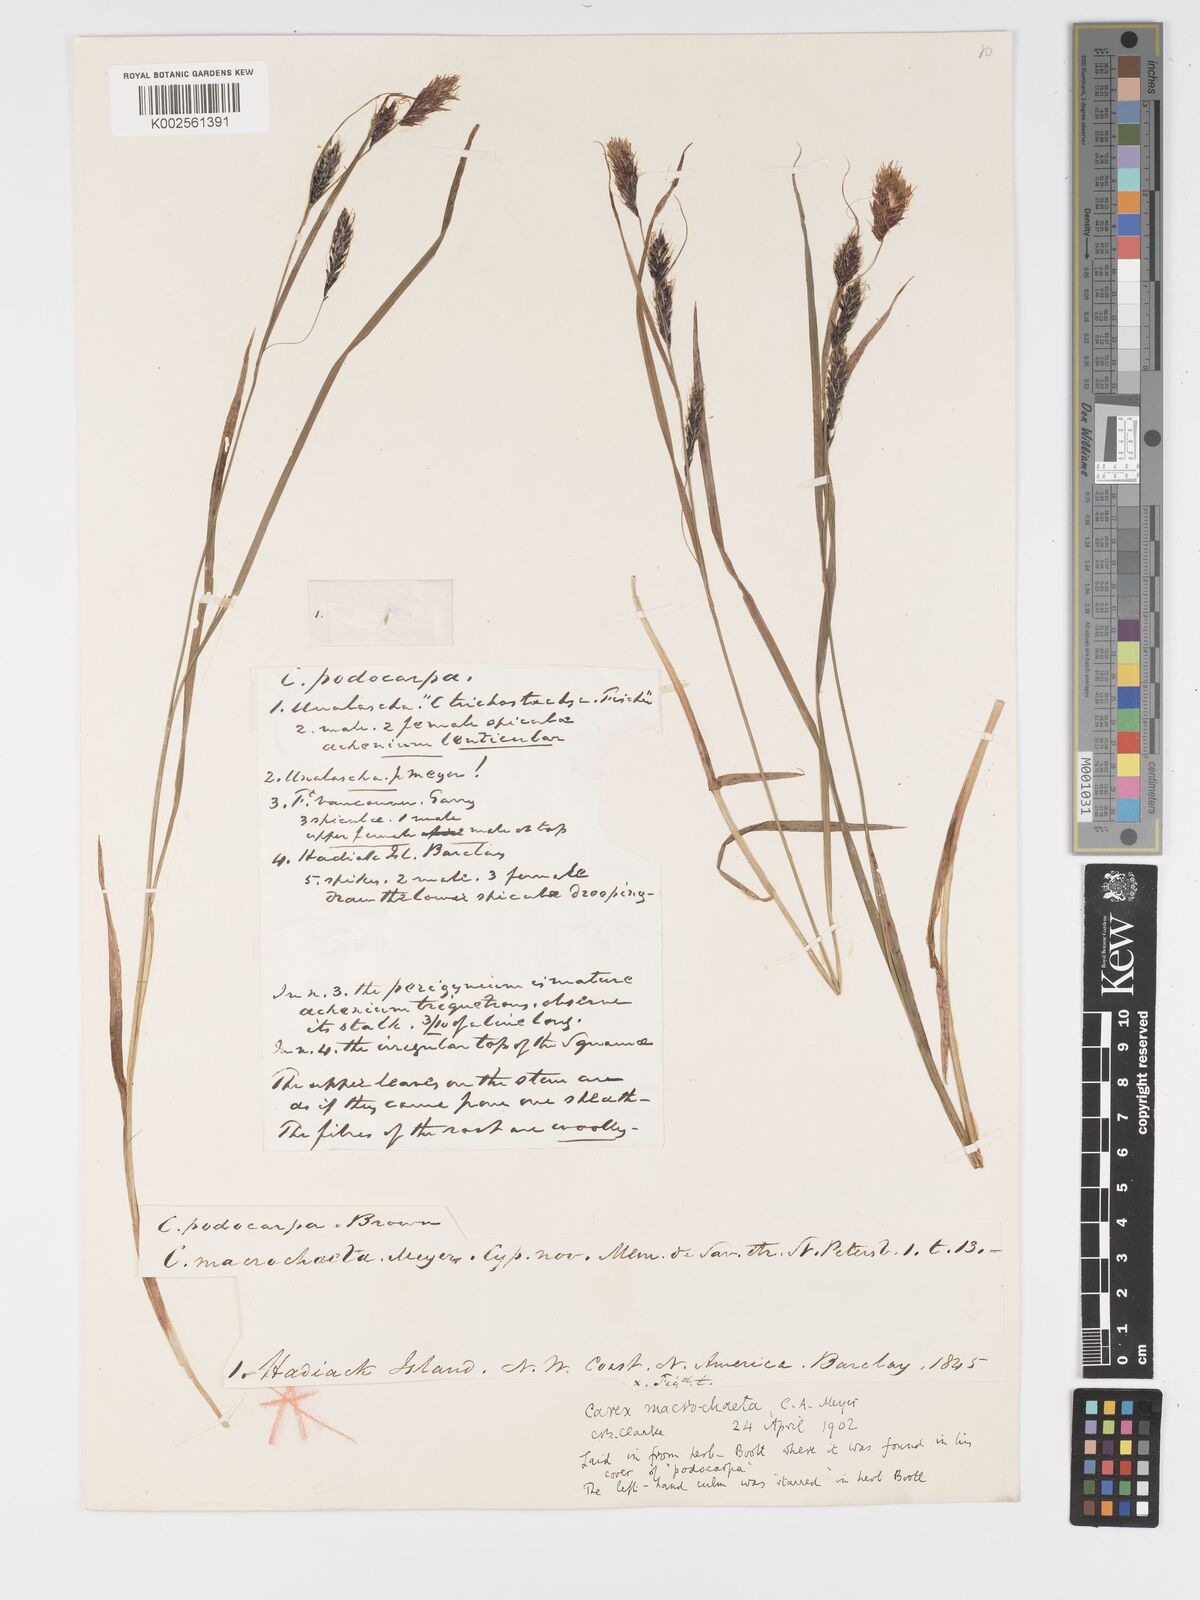 ROYAL BOTANIC GARDENS KEW
K002561391
1.
C. podocarpa.
1. Unalascha. "C trichostachya. Fischer"
2. male. 2 female spiculæ
achenium lenticular
2. Unalascha. Meyer!
3. Ft. Vancouver. Garry
3 spiculæ. 1 male
upper female male at top
4. Hadiack Isl. Barclay
5. spikes. 2 male. 3 female
draw the lower spiculæ drooping-
In n. 3. the perigynium is mature
achenium triquetrous. observe
its stalk. 3/10 of a line long.
In n. 4. the irregular top of the Squamæ
The upper leaves on the stem are
as if they came from one sheath-
The fibres of the root are woolly-
C. podocarpa. Brown
C. macrochaeta. Meyer. Cyp. nov. Mem. de Sav. etr. St. Petersb. 1. t. 13.-
1. Hadiack Island. N. W. Coast. N. America. Barclay. 1845
x. Figd. t.
Carex macrochaeta, C. A. Meyer
C.B. Clarke 24 April 1902
Laid in from herb- Boott where it was found in his
cover of "podocarpa"
The left-hand culm was "starred" in herb Boott
inches
cm
Density
Don Williams
M001031
Royal Botanic Gardens
Kew
copyright reserved
0 1 2 3 4 5 6 7 8 9 10
cm